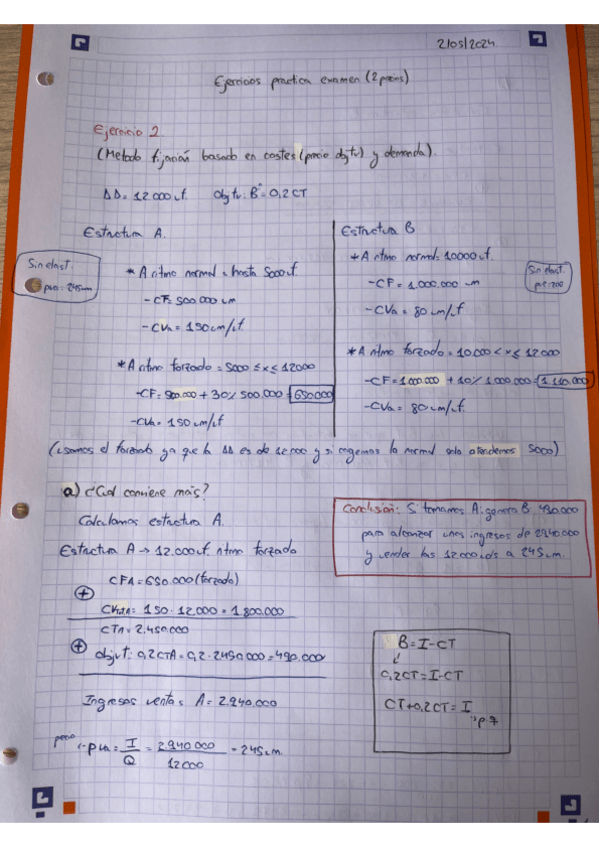 2/05/2024
Ejercicios practica examen (2 precios)
Ejercicio 2
(Metodo fijación basado en costes (precio objtv) y demanda).
ΔD = 12 000 uf. objtv: Bº = 0,2 CT
Estructura A.
Sin elast.
pva = 245um
* A ritmo normal = hasta 5000uf
- CF = 500.000 um
- CVa = 150um/uf
* A ritmo forzado = 5000 ≤ x ≤ 12000
- CF = 500.000 + 30% 500.000 = 650.000
- CVa = 150 um/uf
Estructura B
* A ritmo normal = 10000 uf.
Sin elast.
- CF = 1.000.000 um
- CVa = 80 um/uf
* A ritmo forzado = 10.000 < x ≤ 12000
- CF = 1.000.000 + 10% 1.000.000 = 1.100.000
- CVa = 80 um/uf.
(usamos el forzado ya que la ΔD es de 12 000 y si cogemos lo normal solo atendemos 5000)
a) ¿Cual conviene más?
Calculamos estructura A.
Estructura A → 12.000uf ritmo forzado
CFA = 650.000 (forzado)
+
150 · 12.000 = 1.800.000
CTA = 2.450.000
+ objvt: 0,2CTA = 0,2 · 2450 000 = 490.000
Ingresos ventas A = 2.940.000
pva = I/Q = 2.940.000/12000 = 245um.
Conclusión: Si tomamos A: genera B 490.000
para alcanzar unos ingresos de 2940.000
y vender las 12000 uds a 245um.
B = I - CT
↓
0,2CT = I - CT
CT + 0,2CT = I